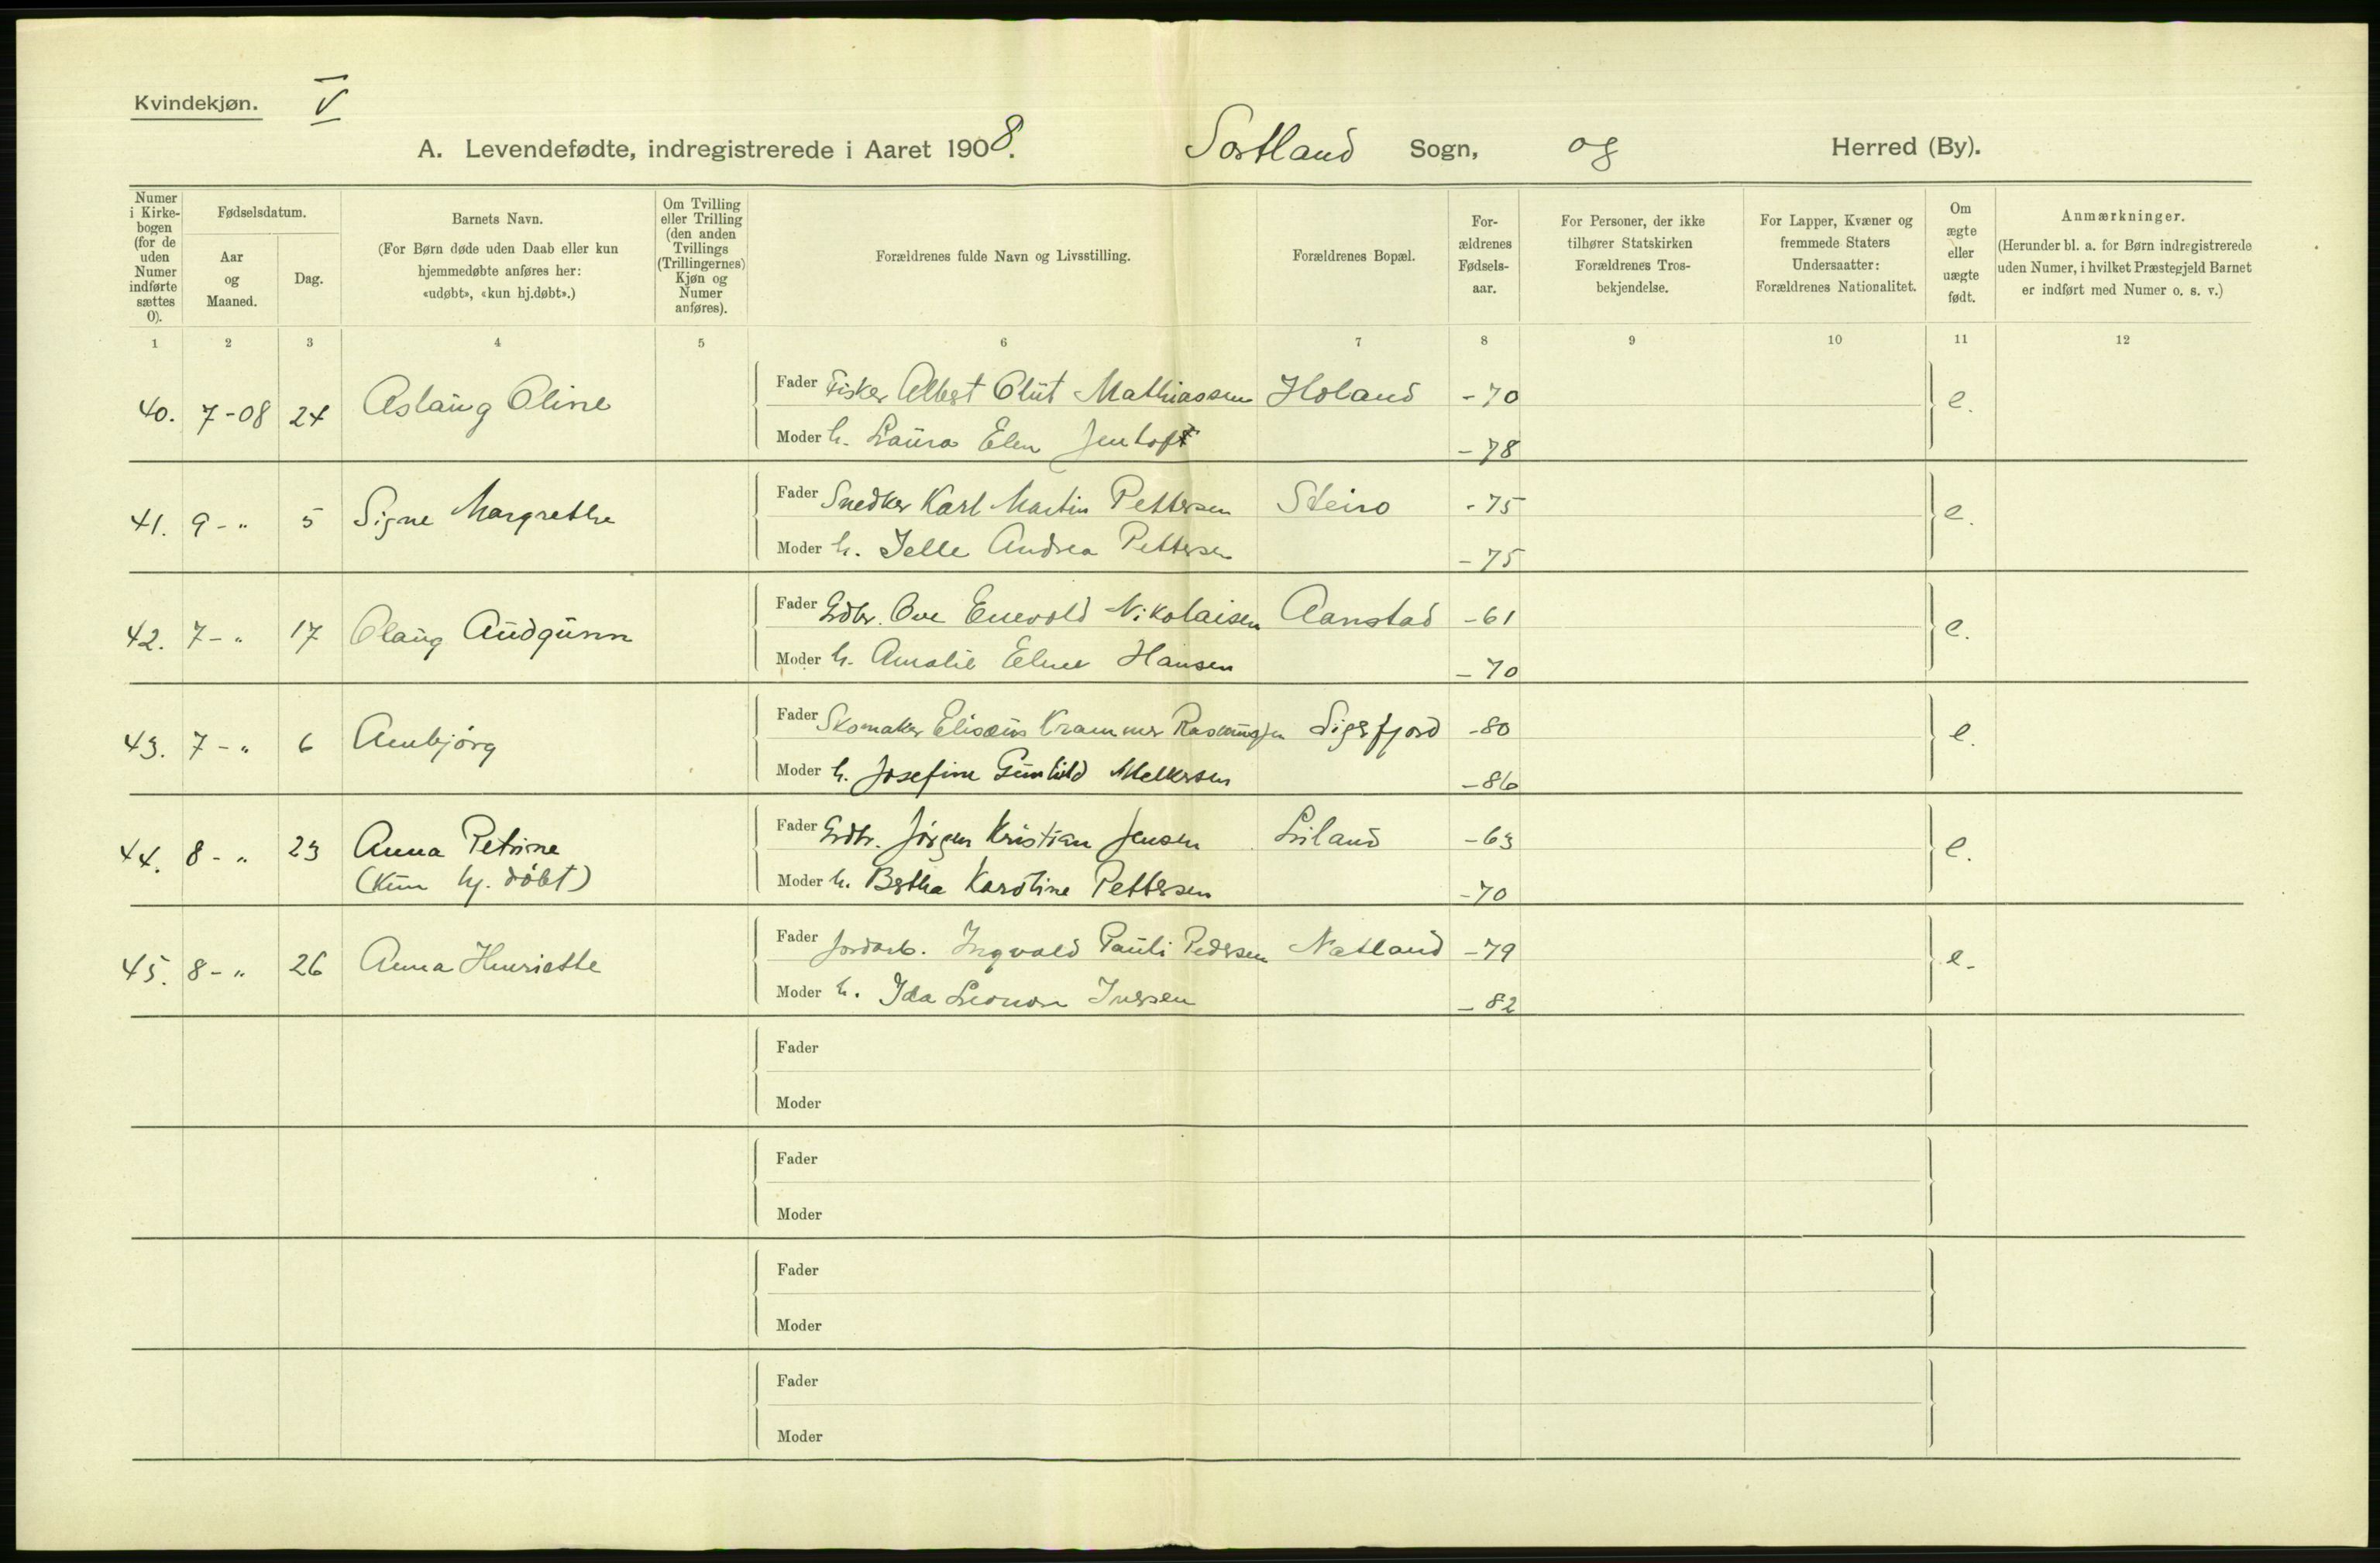 Kvindekjøn. V
A. Levendefødte, indregistrerede i Aaret 1908. Sortland Sogn, og Herred (By).
Numer i Kirkebogen (for de uden Numer indførte sættes 0).
Fødselsdatum.
Aar og Maaned.
Dag.
Barnets Navn.
(For Børn døde uden Daab eller kun hjemmedøbte anføres her: «udøbt», «kun hj.døbt».)
Om Tvilling eller Trilling (den anden Tvillings (Trillingernes) Kjøn og Numer anføres).
Forældrenes fulde Navn og Livsstilling.
Forældrenes Bopæl.
For-ældrenes Fødsels-aar.
For Personer, der ikke tilhører Statskirken Forældrenes Tros-bekjendelse.
For Lapper, Kvæner og fremmede Staters Undersaatter: Forældrenes Nationalitet.
Om ægte eller uægte født.
Anmærkninger.
(Herunder bl. a. for Børn indregistrerede uden Numer, i hvilket Præstegjeld Barnet er indført med Numer o. s. v.)
1 2 3 4 5 6 7 8 9 10 11 12
40. 7-08 24 Aslaug Oline Fader Fisker Albert Olut Mathiassen Holand -70 e.
Moder h. Laura Elen Jentoft -78
41. 9-" 5 Signe Margrethe Fader Snedker Karl Martin Pettersen Steiro -75 e.
Moder h. Jelle Andrea Pettersen -75
42. 7-" 17 Olaug Audgunn Fader Gdbr. Ove Enevold Nikolaisen Aanstad -61 e.
Moder h. Amalie Hansen -70
43. 7-" 6 Annbjørg Fader Skomaker Elisæus Krammer Rasmussen Sigerfjord -80 e.
Moder h. Josefine Gunhild -86
44. 8-" 23 Anna Petrine Fader Gdbr. Jørgen Kristian Jensen Liland -63 e.
(Kun hj. døbt) Moder h. Bertha Karoline Pettersen -70
45. 8-" 26 Anna Henriette Fader Jordarb. Ingvald Pauli Pedersen Natland -79 e.
Moder h. Ida Leonore Iversen -82
Fader
Moder
Fader
Moder
Fader
Moder
Fader
Moder